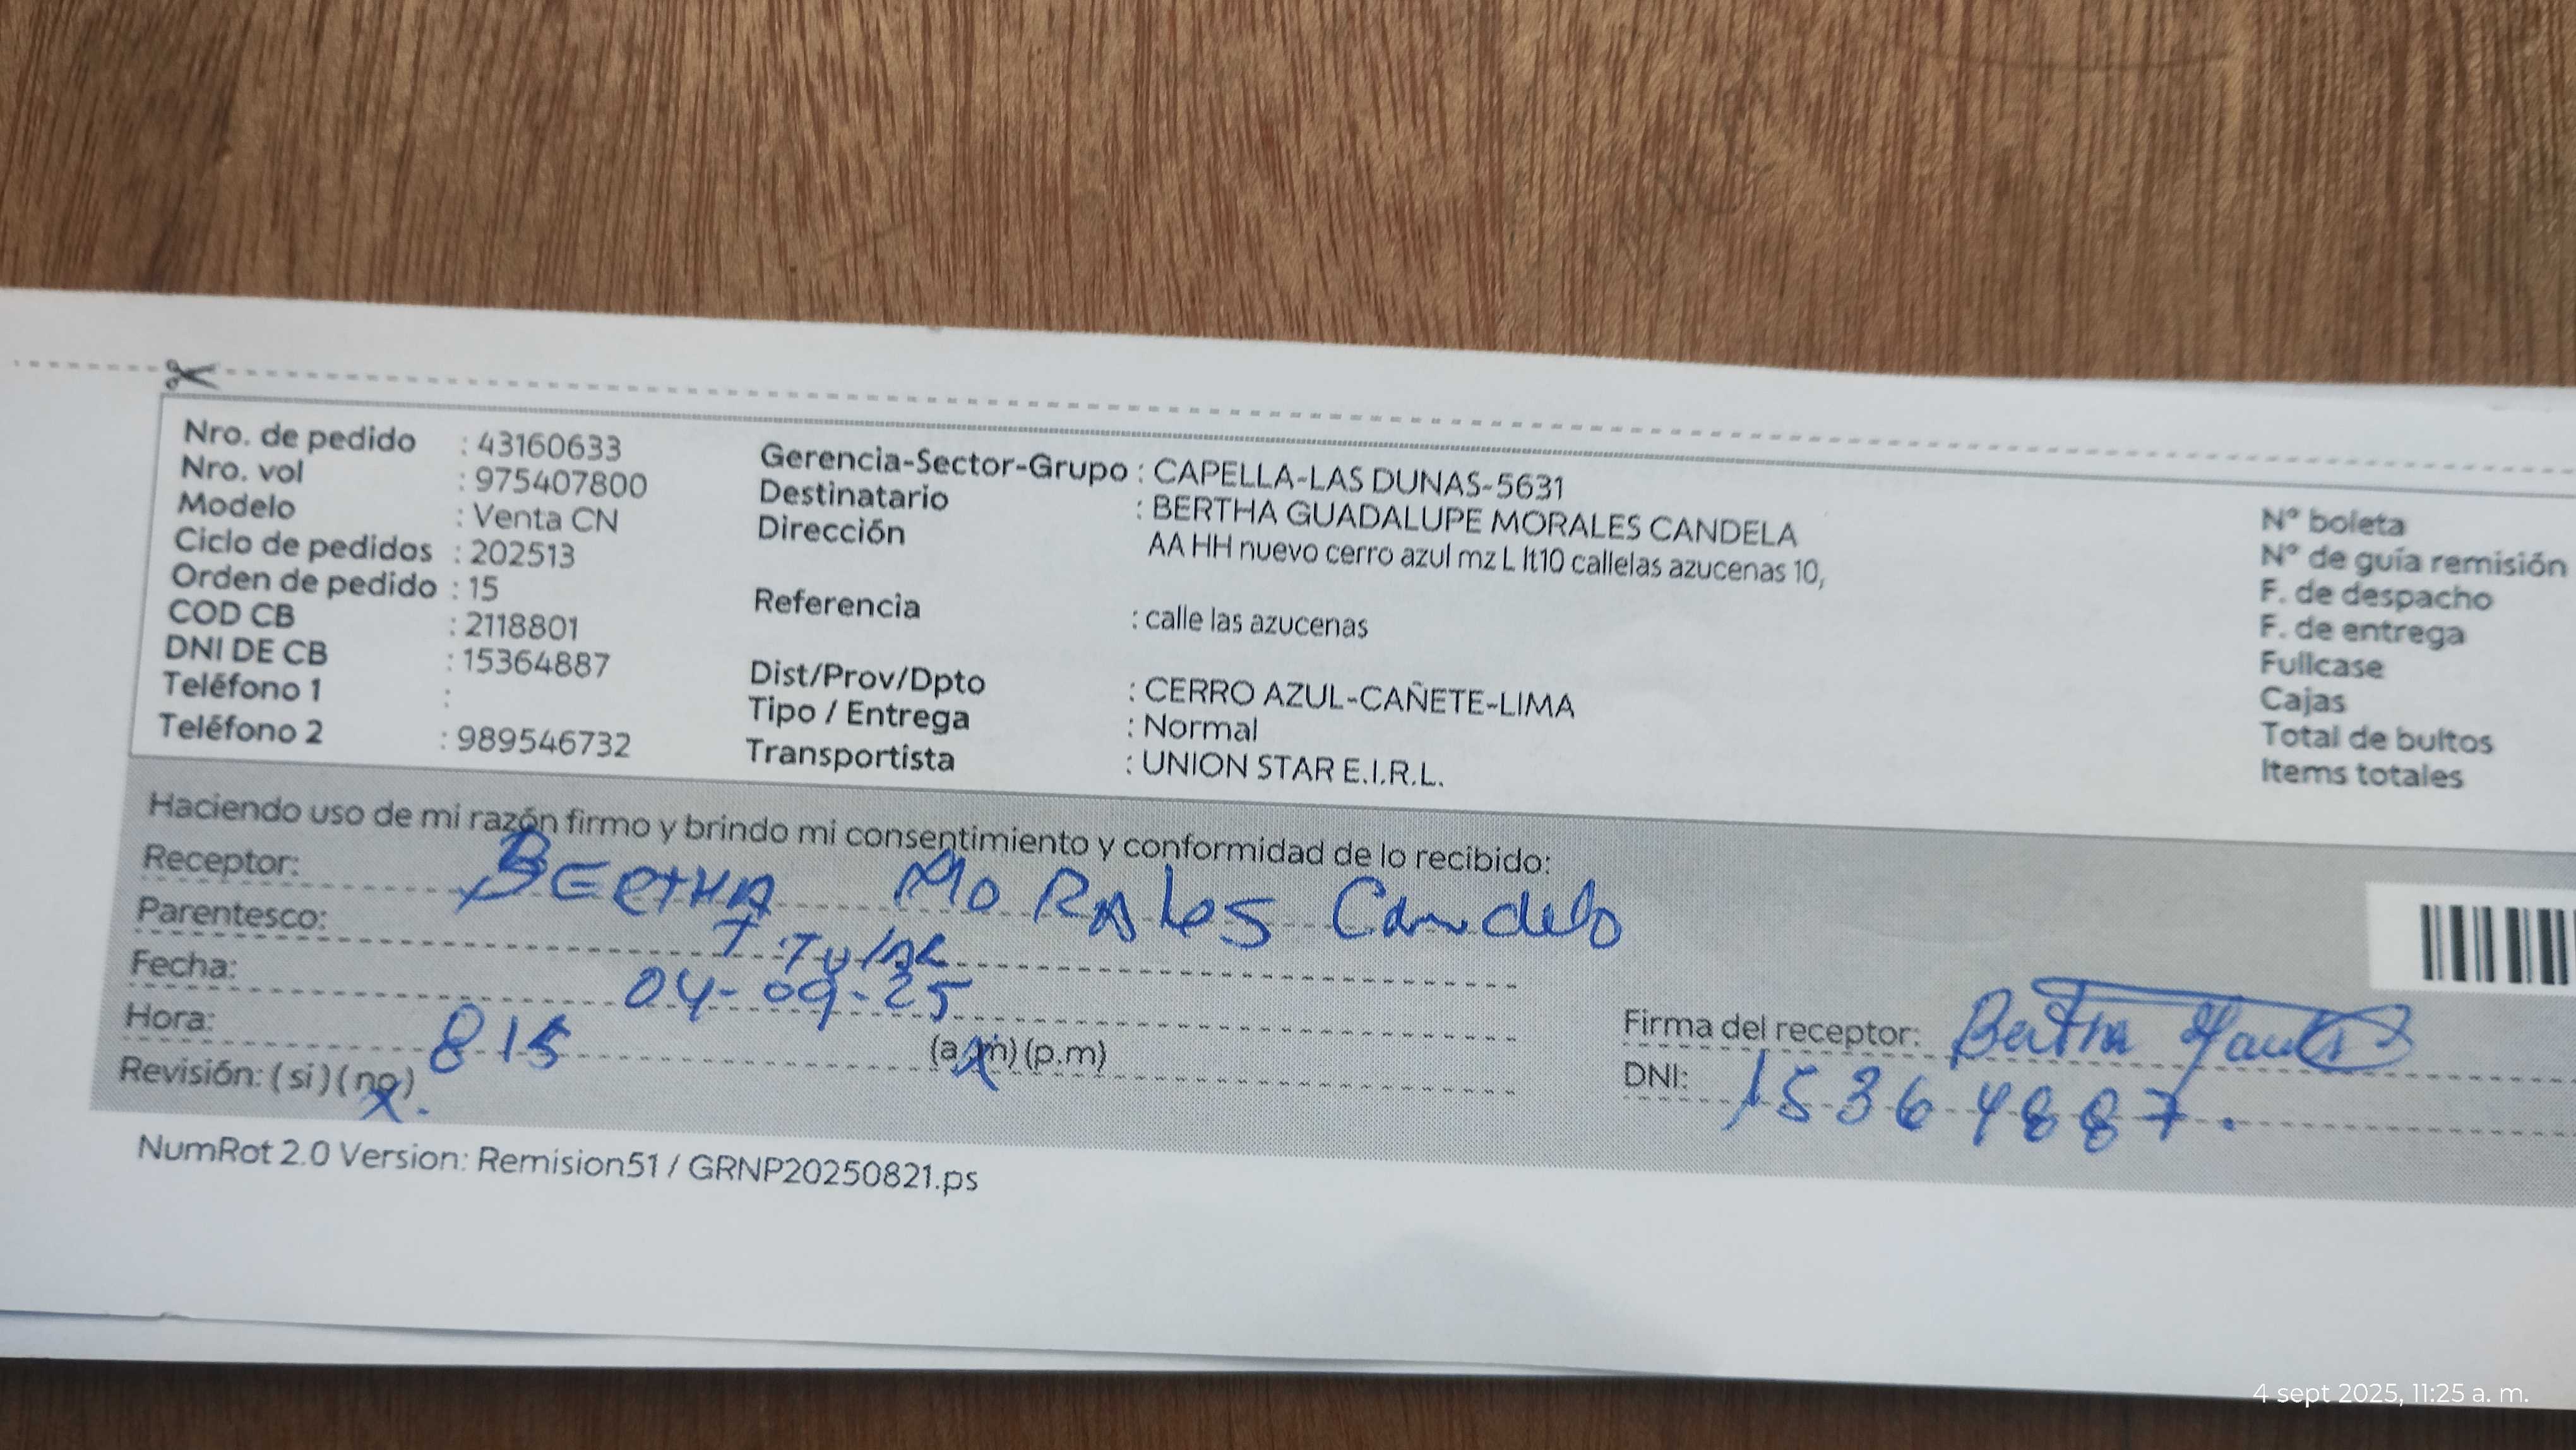 Nro. de pedido : 43160633
Nro. vol : 975407800
Modelo : Venta CN
Ciclo de pedidos : 202513
Orden de pedido : 15
COD CB : 2118801
DNI DE CB : 15364887
Teléfono 1 :
Teléfono 2 : 989546732
Gerencia-Sector-Grupo : CAPELLA-LAS DUNAS-5631
Destinatario : BERTHA GUADALUPE MORALES CANDELA
Dirección AA HH nuevo cerro azul mz L lt10 callelas azucenas 10,
Referencia : calle las azucenas
Dist/Prov/Dpto : CERRO AZUL-CAÑETE-LIMA
Tipo / Entrega : Normal
Transportista : UNION STAR E.I.R.L.
Nº boleta
Nº de guía remisión
F. de despacho
F. de entrega
Fullcase
Cajas
Total de bultos
Items totales
Haciendo uso de mi razón firmo y brindo mi consentimiento y conformidad de lo recibido:
Receptor: BERTHA MORALES Candela
Parentesco: TiTulAR
Fecha: 04-09-25
Hora: 815 (a.m) (p.m)
Revisión: (si) (no)
Firma del receptor: Bertha
DNI: 15364887.
NumRot 2.0 Version: Remision51 / GRNP20250821.ps
4 sept 2025, 11:25 a. m.